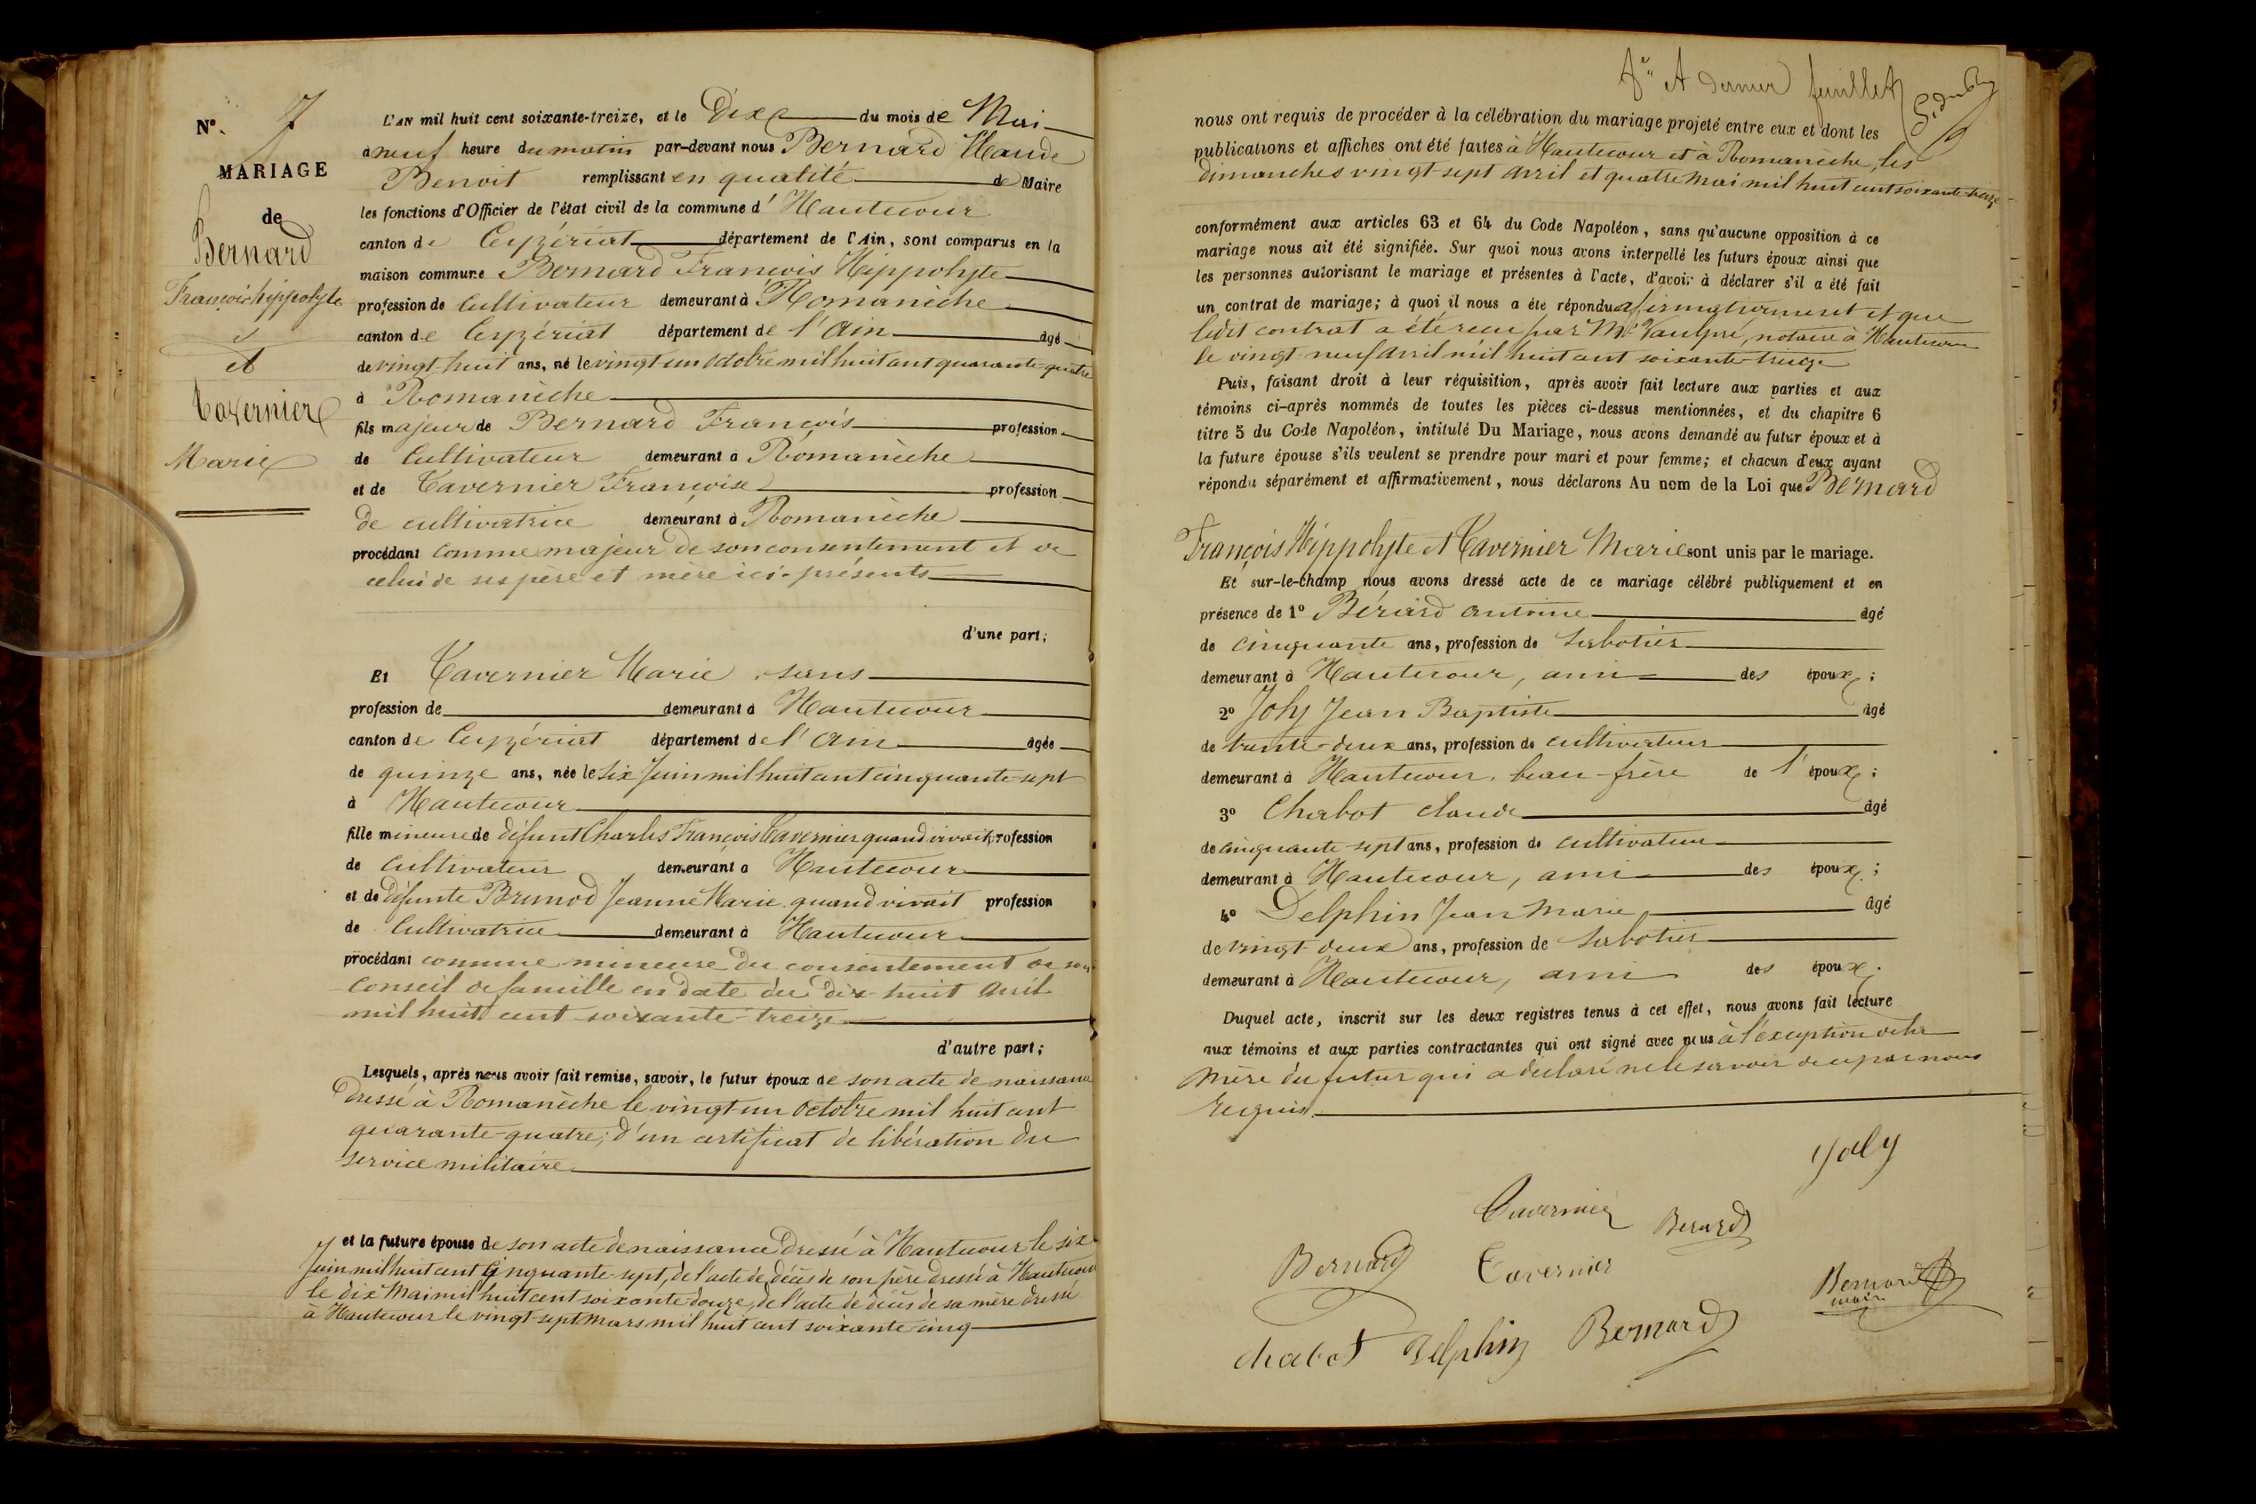 N°. 7
MARIAGE
de
Bernard
François hippolyte
et
Tavernier
Marie
L'AN mil huit cent soixante-treize, et le Dix du mois de Mai
à neuf heure du matin par-devant nous Bernard Claude
Benoit remplissant en qualité de Maire
les fonctions d'Officier de l'état civil de la commune d' Hautecour
canton de Ceyzériat département de l'Ain, sont comparus en la
maison commune Bernard François Hippolyte
profession de cultivateur demeurant à Romanèche
canton de Ceyzériat département de l'Ain âgé
de vingt-huit ans, né le vingt un octobre mil huit cent quarante-quatre
à Romanèche
fils majeur de Bernard François profession
de cultivateur demeurant à Romanèche
et de Tavernier Françoise profession
de cultivatrice demeurant à Romanèche
procédant comme majeur de son consentement et de
celui de ses père et mère ici présents
d'une part;
Et Tavernier Marie, sans
profession de demeurant à Hautecour
canton de Ceyzériat département de l'Ain âgée
de quinze ans, née le six Juin mil huit cent cinquante-sept
à Hautecour
fille mineure de défunt Charles François Tavernier quand vivait profession
de cultivateur demeurant à Hautecour
et de défunte Brunod Jeanne Marie quand vivait profession
de Cultivatrice demeurant à Hautecour
procédant comme mineure du consentement de son
Conseil de famille en date du dix-huit avril
mil huit cent soixante-treize
d'autre part;
Lesquels, après nous avoir fait remise, savoir, le futur époux de son acte de naissance
Dressé à Romanèche le vingt-un Octobre mil huit cent
quarante-quatre; d'un certificat de libération du
service militaire
et la future épouse de son acte de naissance Dressé à Hautecour le six
Juin mil huit cent cinquante-sept, de l'acte de décès de son père dressé à Hautecour
le dix Mai mil huit cent soixante douze, de l'acte de décès de sa mère dressé
à Hautecour le vingt-sept Mars mil huit cent soixante-cinq
et dernier feuillet
nous ont requis de procéder à la célébration du mariage projeté entre eux et dont les
publications et affiches ont été faites à Hautecour et à Romanèche, les
dimanches vingt-sept avril et quatre Mai mil huit cent soixante-treize
conformément aux articles 63 et 64 du Code Napoléon, sans qu'aucune opposition à ce
mariage nous ait été signifiée. Sur quoi nous avons interpellé les futurs époux ainsi que
les personnes autorisant le mariage et présentes à l'acte, d'avoir à déclarer s'il a été fait
un contrat de mariage; à quoi il nous a été répondu affirmativement et que
ledit contrat a été reçu par Me Vaulpré, notaire à Hautecour
le vingt-neuf Avril mil huit cent soixante-treize
Puis, faisant droit à leur réquisition, après avoir fait lecture aux parties et aux
témoins ci-après nommés de toutes les pièces ci-dessus mentionnées, et du chapitre 6
titre 5 du Code Napoléon, intitulé Du Mariage, nous avons demandé au futur époux et à
la future épouse s'ils veulent se prendre pour mari et pour femme; et chacun d'eux ayant
répondu séparément et affirmativement, nous déclarons Au nom de la Loi que Bernard
François Hippolyte et Tavernier Marie sont unis par le mariage.
Et sur-le-champ nous avons dressé acte de ce mariage célébré publiquement et en
présence de 1° Bérard Antoine âgé
de cinquante ans, profession de sabotier
demeurant à Hautecour, ami des époux;
2° Joly Jean Baptiste âgé
de trente-deux ans, profession de cultivateur
demeurant à Hautecour, beau-frère de l'époux;
3° Chabot Claude âgé
de cinquante-sept ans, profession de cultivateur
demeurant à Hautecour, ami des époux;
4° Delphin Jean Marie âgé
de vingt-deux ans, profession de sabotier
demeurant à Hautecour, ami des époux.
Duquel acte, inscrit sur les deux registres tenus à cet effet, nous avons fait lecture
aux témoins et aux parties contractantes qui ont signé avec nous à l'exception de la
mère du futur qui a déclaré ne le savoir de ce par nous
requis.
Joly
Tavernier Berard
Bernard Tavernier Bernard
maire
chabot Delphin Bernard